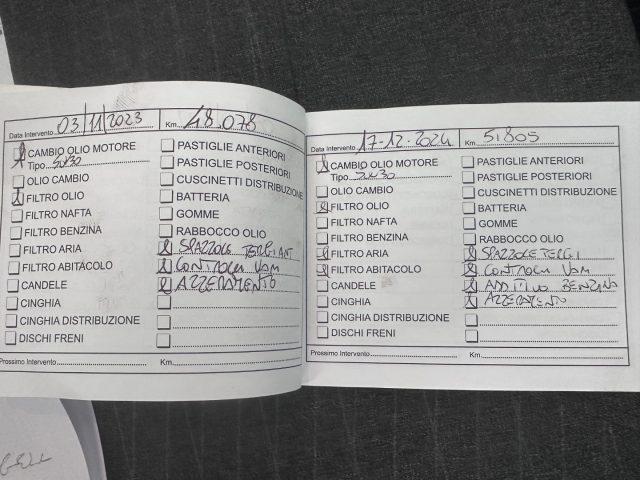 Data Intervento 03/11/2023 Km. 48.078
CAMBIO OLIO MOTORE
Tipo 5W30
OLIO CAMBIO
FILTRO OLIO
FILTRO NAFTA
FILTRO BENZINA
FILTRO ARIA
FILTRO ABITACOLO
CANDELE
CINGHIA
CINGHIA DISTRIBUZIONE
DISCHI FRENI
PASTIGLIE ANTERIORI
PASTIGLIE POSTERIORI
CUSCINETTI DISTRIBUZIONE
BATTERIA
GOMME
RABBOCCO OLIO
SPAZZOLE TERGI ANT
CONTROLLI VARI
AZZERAMENTO
Prossimo Intervento Km.
Data Intervento 17-12-2024 Km. 51805
CAMBIO OLIO MOTORE
Tipo
OLIO CAMBIO
FILTRO OLIO
FILTRO NAFTA
FILTRO BENZINA
FILTRO ARIA
FILTRO ABITACOLO
CANDELE
CINGHIA
CINGHIA DISTRIBUZIONE
DISCHI FRENI
PASTIGLIE ANTERIORI
PASTIGLIE POSTERIORI
CUSCINETTI DISTRIBUZIONE
BATTERIA
GOMME
RABBOCCO OLIO
SPAZZOLE TERGI
CONTROLLI VARI
ADDITIVO BENZINA
AZZERAMENTO
Prossimo Intervento Km.